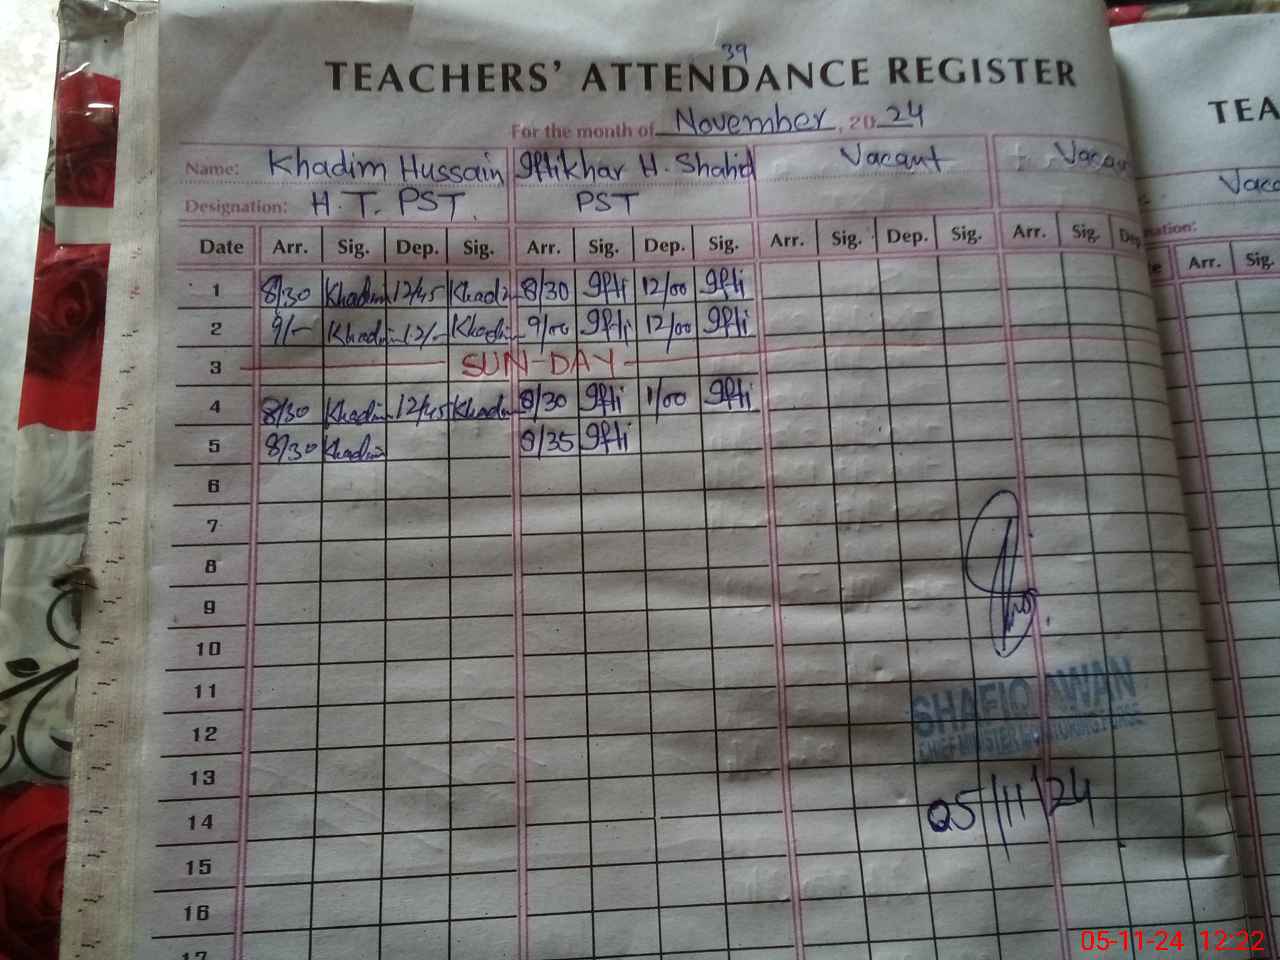 39
TEACHERS' ATTENDANCE REGISTER
For the month of November, 2024
Name: Khadim Hussain Iftikhar H. Shahid Vacant Vacan
Designation: H.T. PST. PST
Date Arr. Sig. Dep. Sig. Arr. Sig. Dep. Sig. Arr. Sig. Dep. Sig. Arr. Sig. Dep
1 8/30 Khadim 12/45 Khadi 8/30 Ifti 12/00 Ifti
2 9/- Khadi 12/- Khadi 9/00 Ifti 12/00 Ifti
3 SUN-DAY
4 8/30 Khadi 12/45 Khadi 8/30 Ifti 1/00 Ifti
5 8/30 Khadi 8/35 Ifti
6
7
8
9
10
11
12
13
14
15
16
17
SHAFIQ AWAN
CHIEF MINISTER MONITORING FORCE
05/11/24
TEA
Vaca
nation:
e Arr. Sig.
05-11-24 12:22